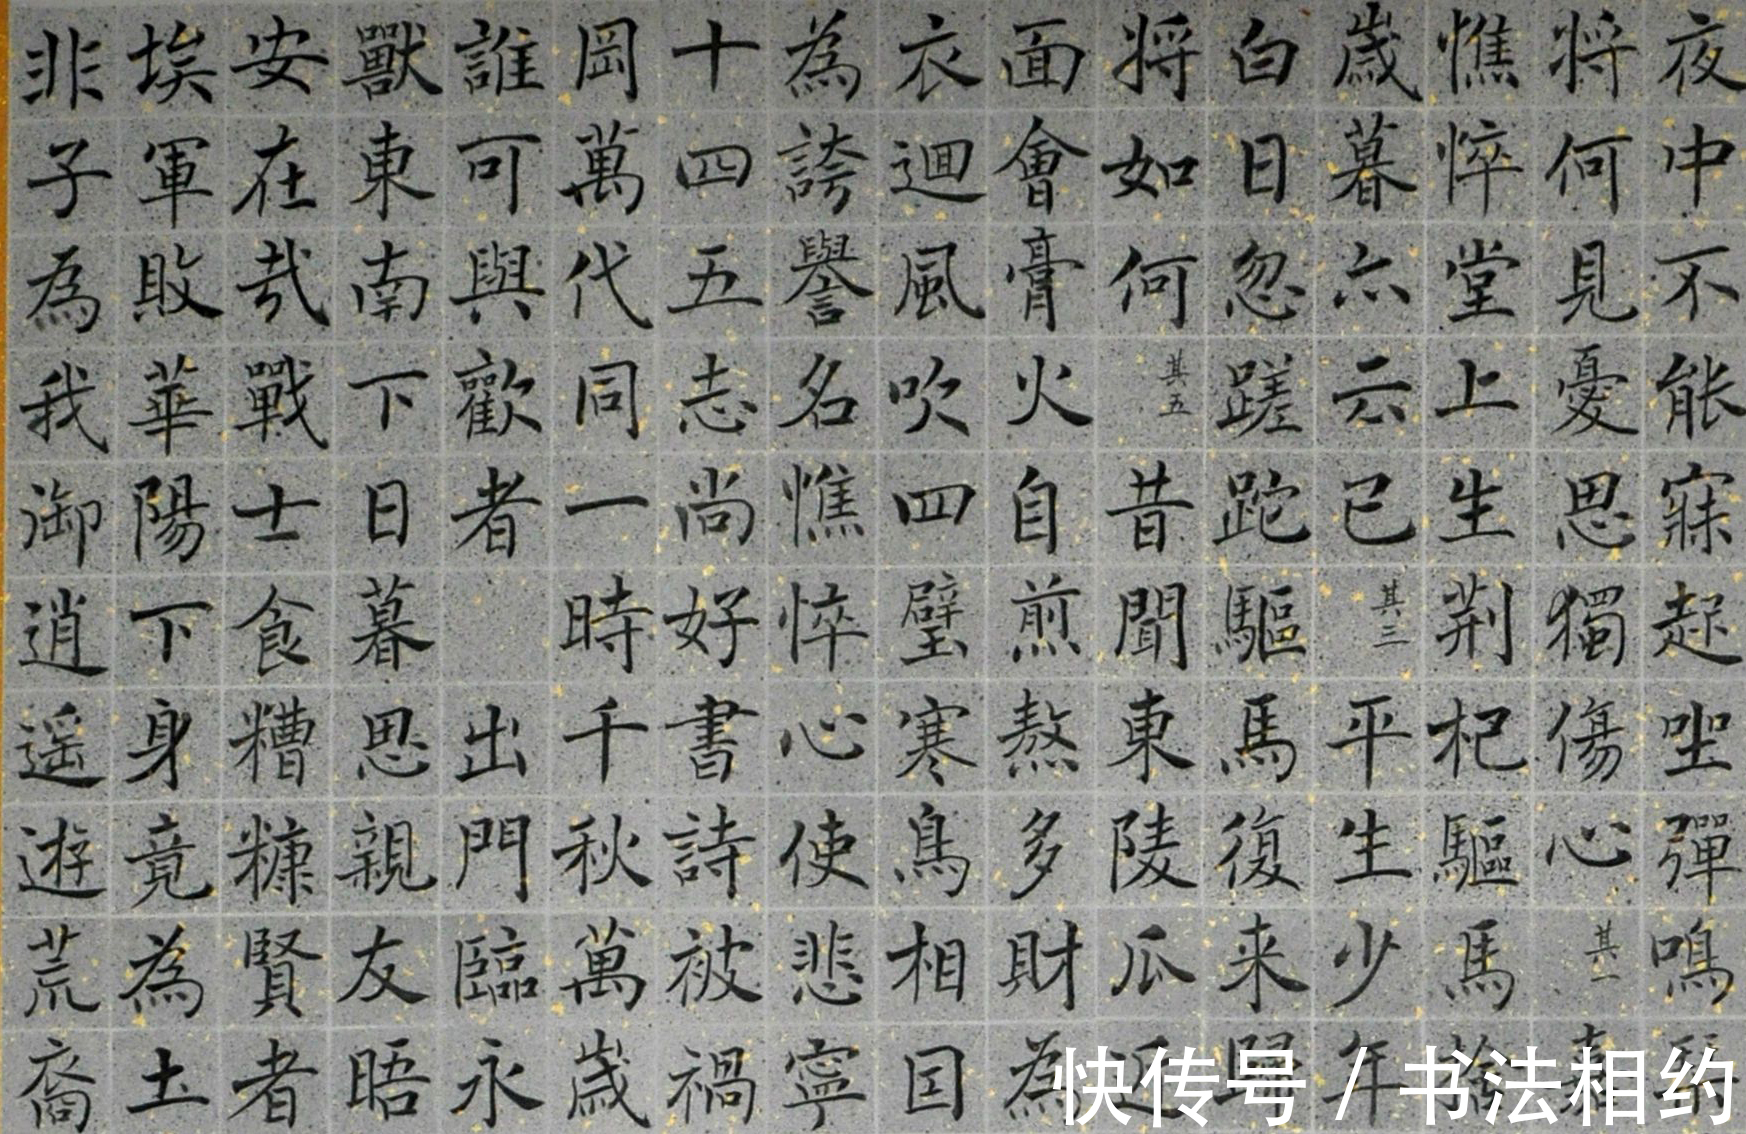 夜中不能寐起坐彈鳴
将何見憂思獨傷心其一
憔悴堂上生荆杞驅馬
歲暮亦云已其三平生少年
白日忽蹉跎驅馬復来歸
将如何其五昔聞東陵瓜近
面會膏火自煎熬多財為
衣迴風吹四壁寒鳥相因
為誇譽名憔悴使心悲寧
十四五志尚好書詩被禍
岡萬代同一時千秋萬歲
誰可與歡者出門臨永
獸東南下日暮思親友晤
安在哉戰士食糟糠賢者
埃軍敗華陽下身竟為土
非子為我御逍遥遊荒裔
快传号 / 书法相约